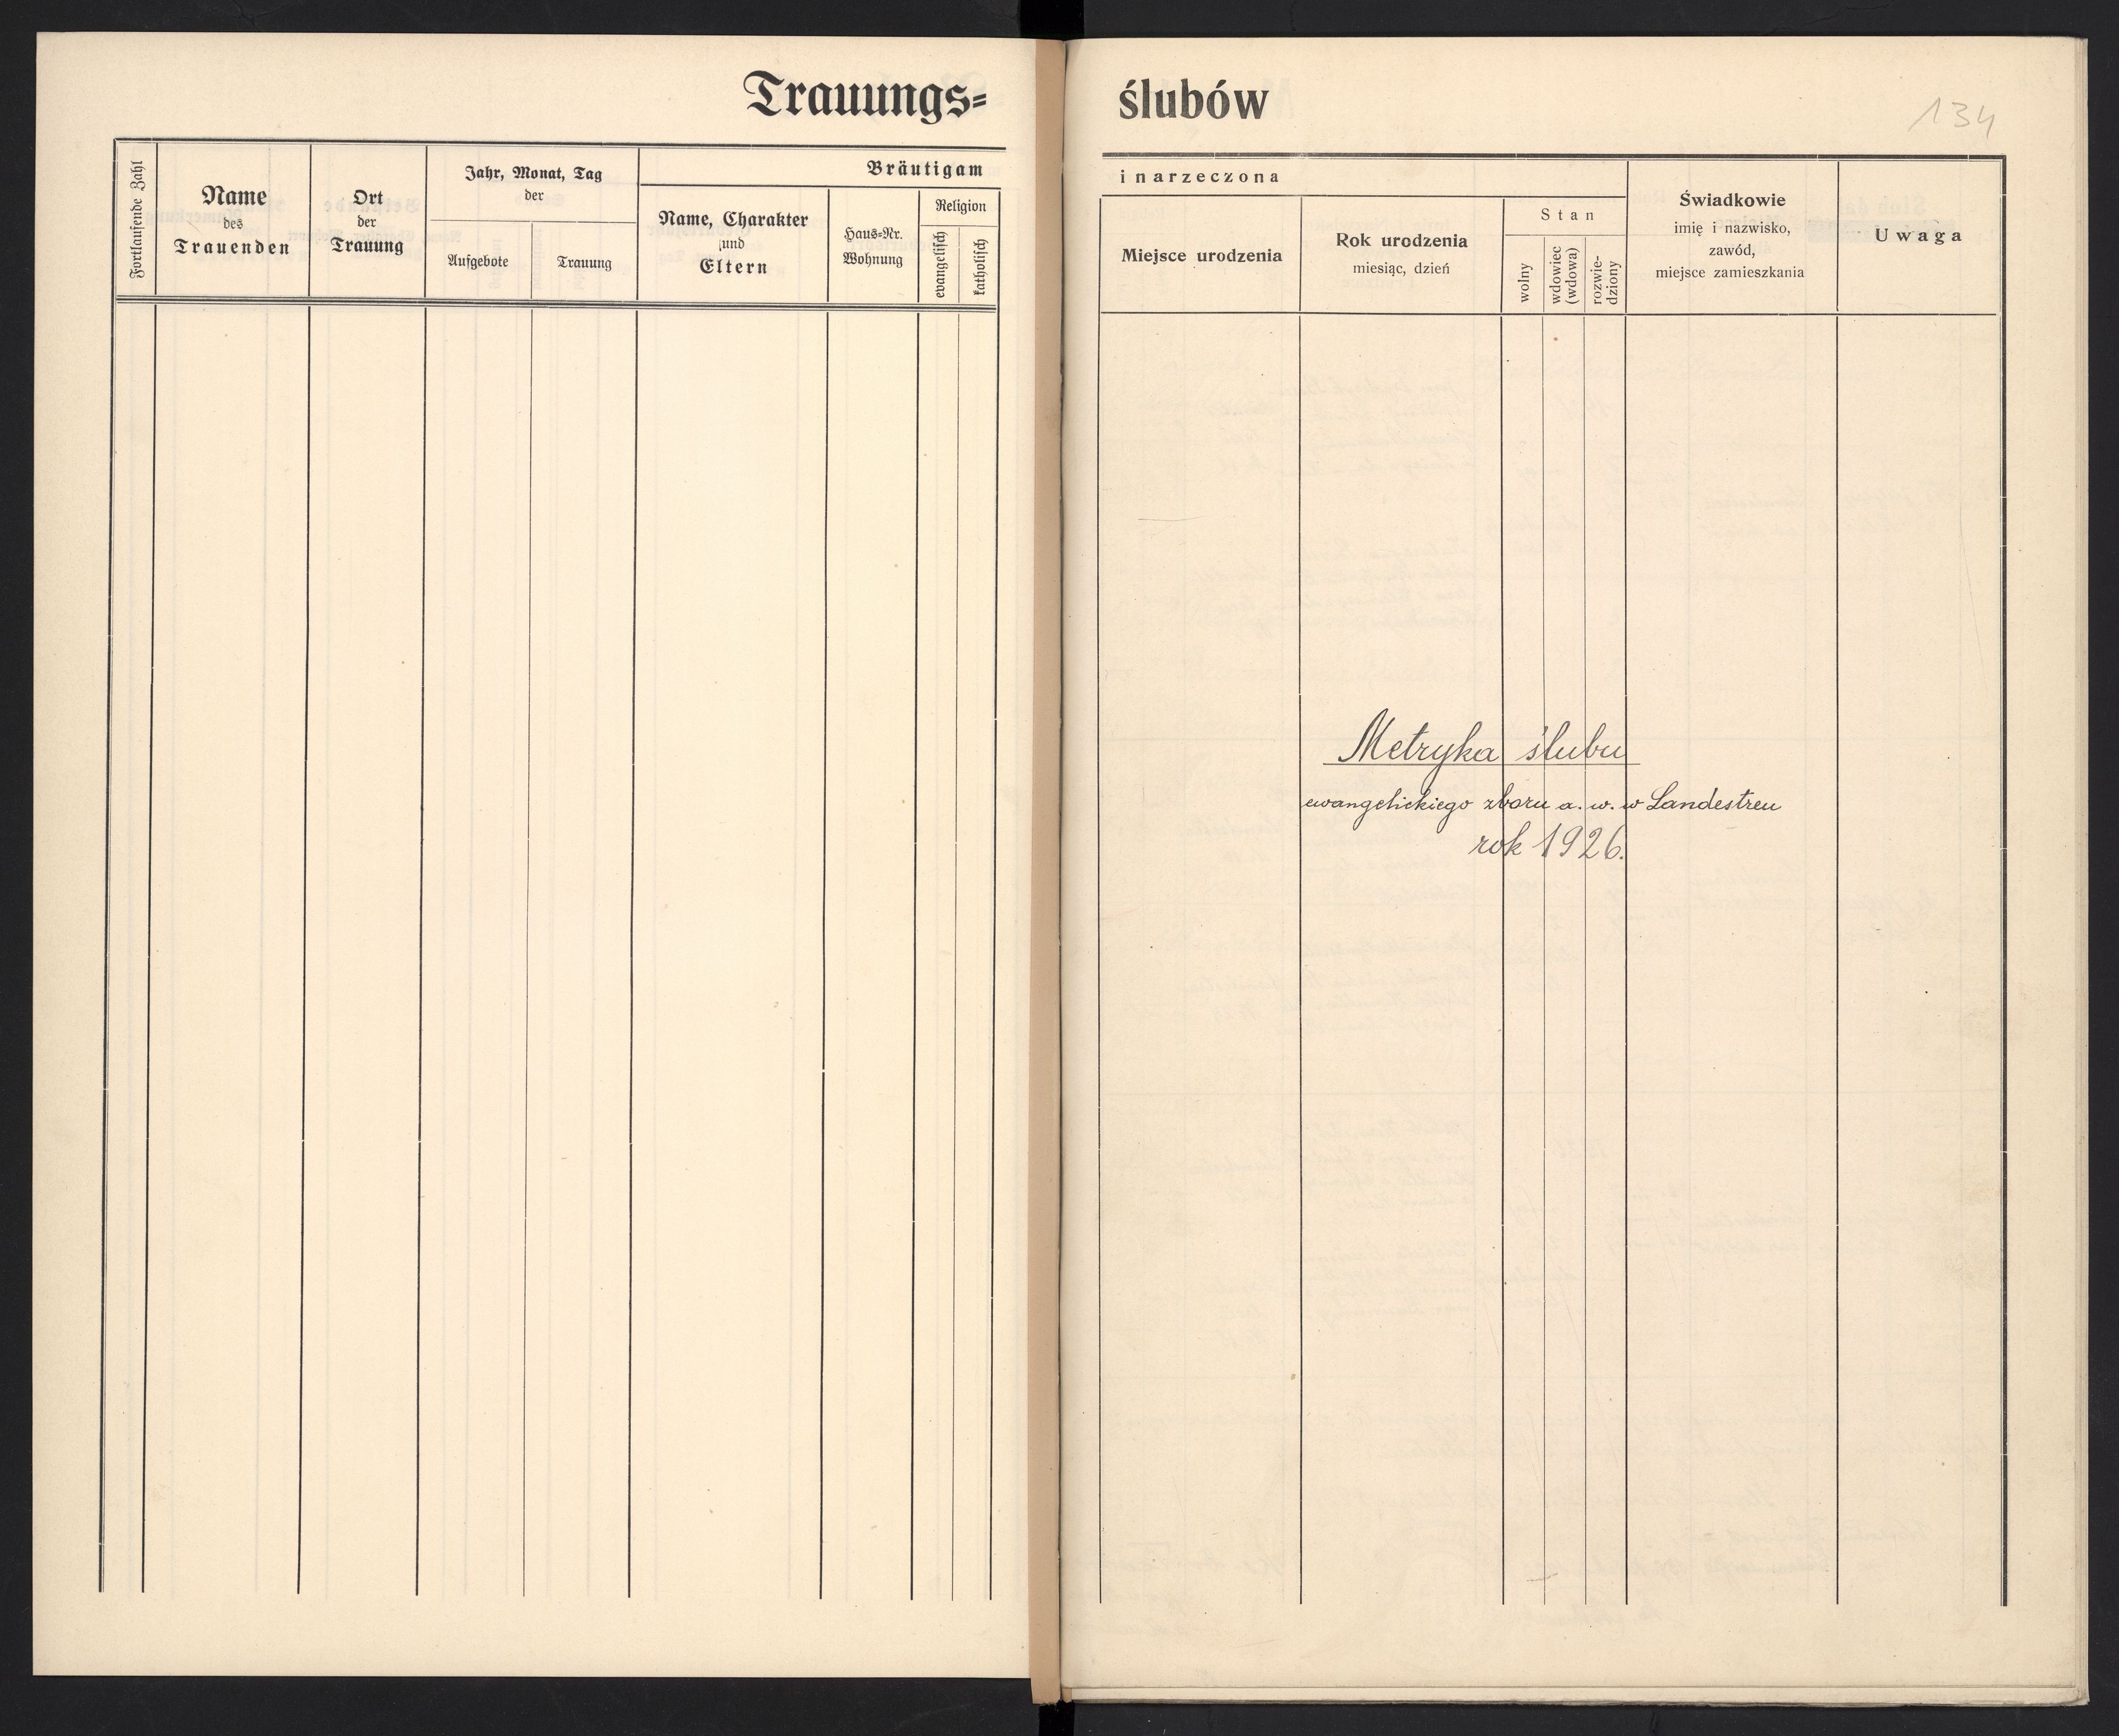 Trauungs=
Fortlaufende Zahl
Name
des
Trauenden
Ort
der
Trauung
Jahr, Monat, Tag
der
Aufgebote
Trauung
Bräutigam
Name, Charakter
und
Eltern
Haus=Nr.
Wohnung
Religion
evangelisch
katholisch
ślubów
134
i narzeczona
Miejsce urodzenia
Rok urodzenia
miesiąc, dzień
Stan
wolny
wdowiec
(wdowa)
rozwie-
dziony
Świadkowie
imię i nazwisko,
zawód,
miejsce zamieszkania
Uwaga
Metryka ślubu
ewangelickiego zboru a. w. w Landestreu
rok 1926.